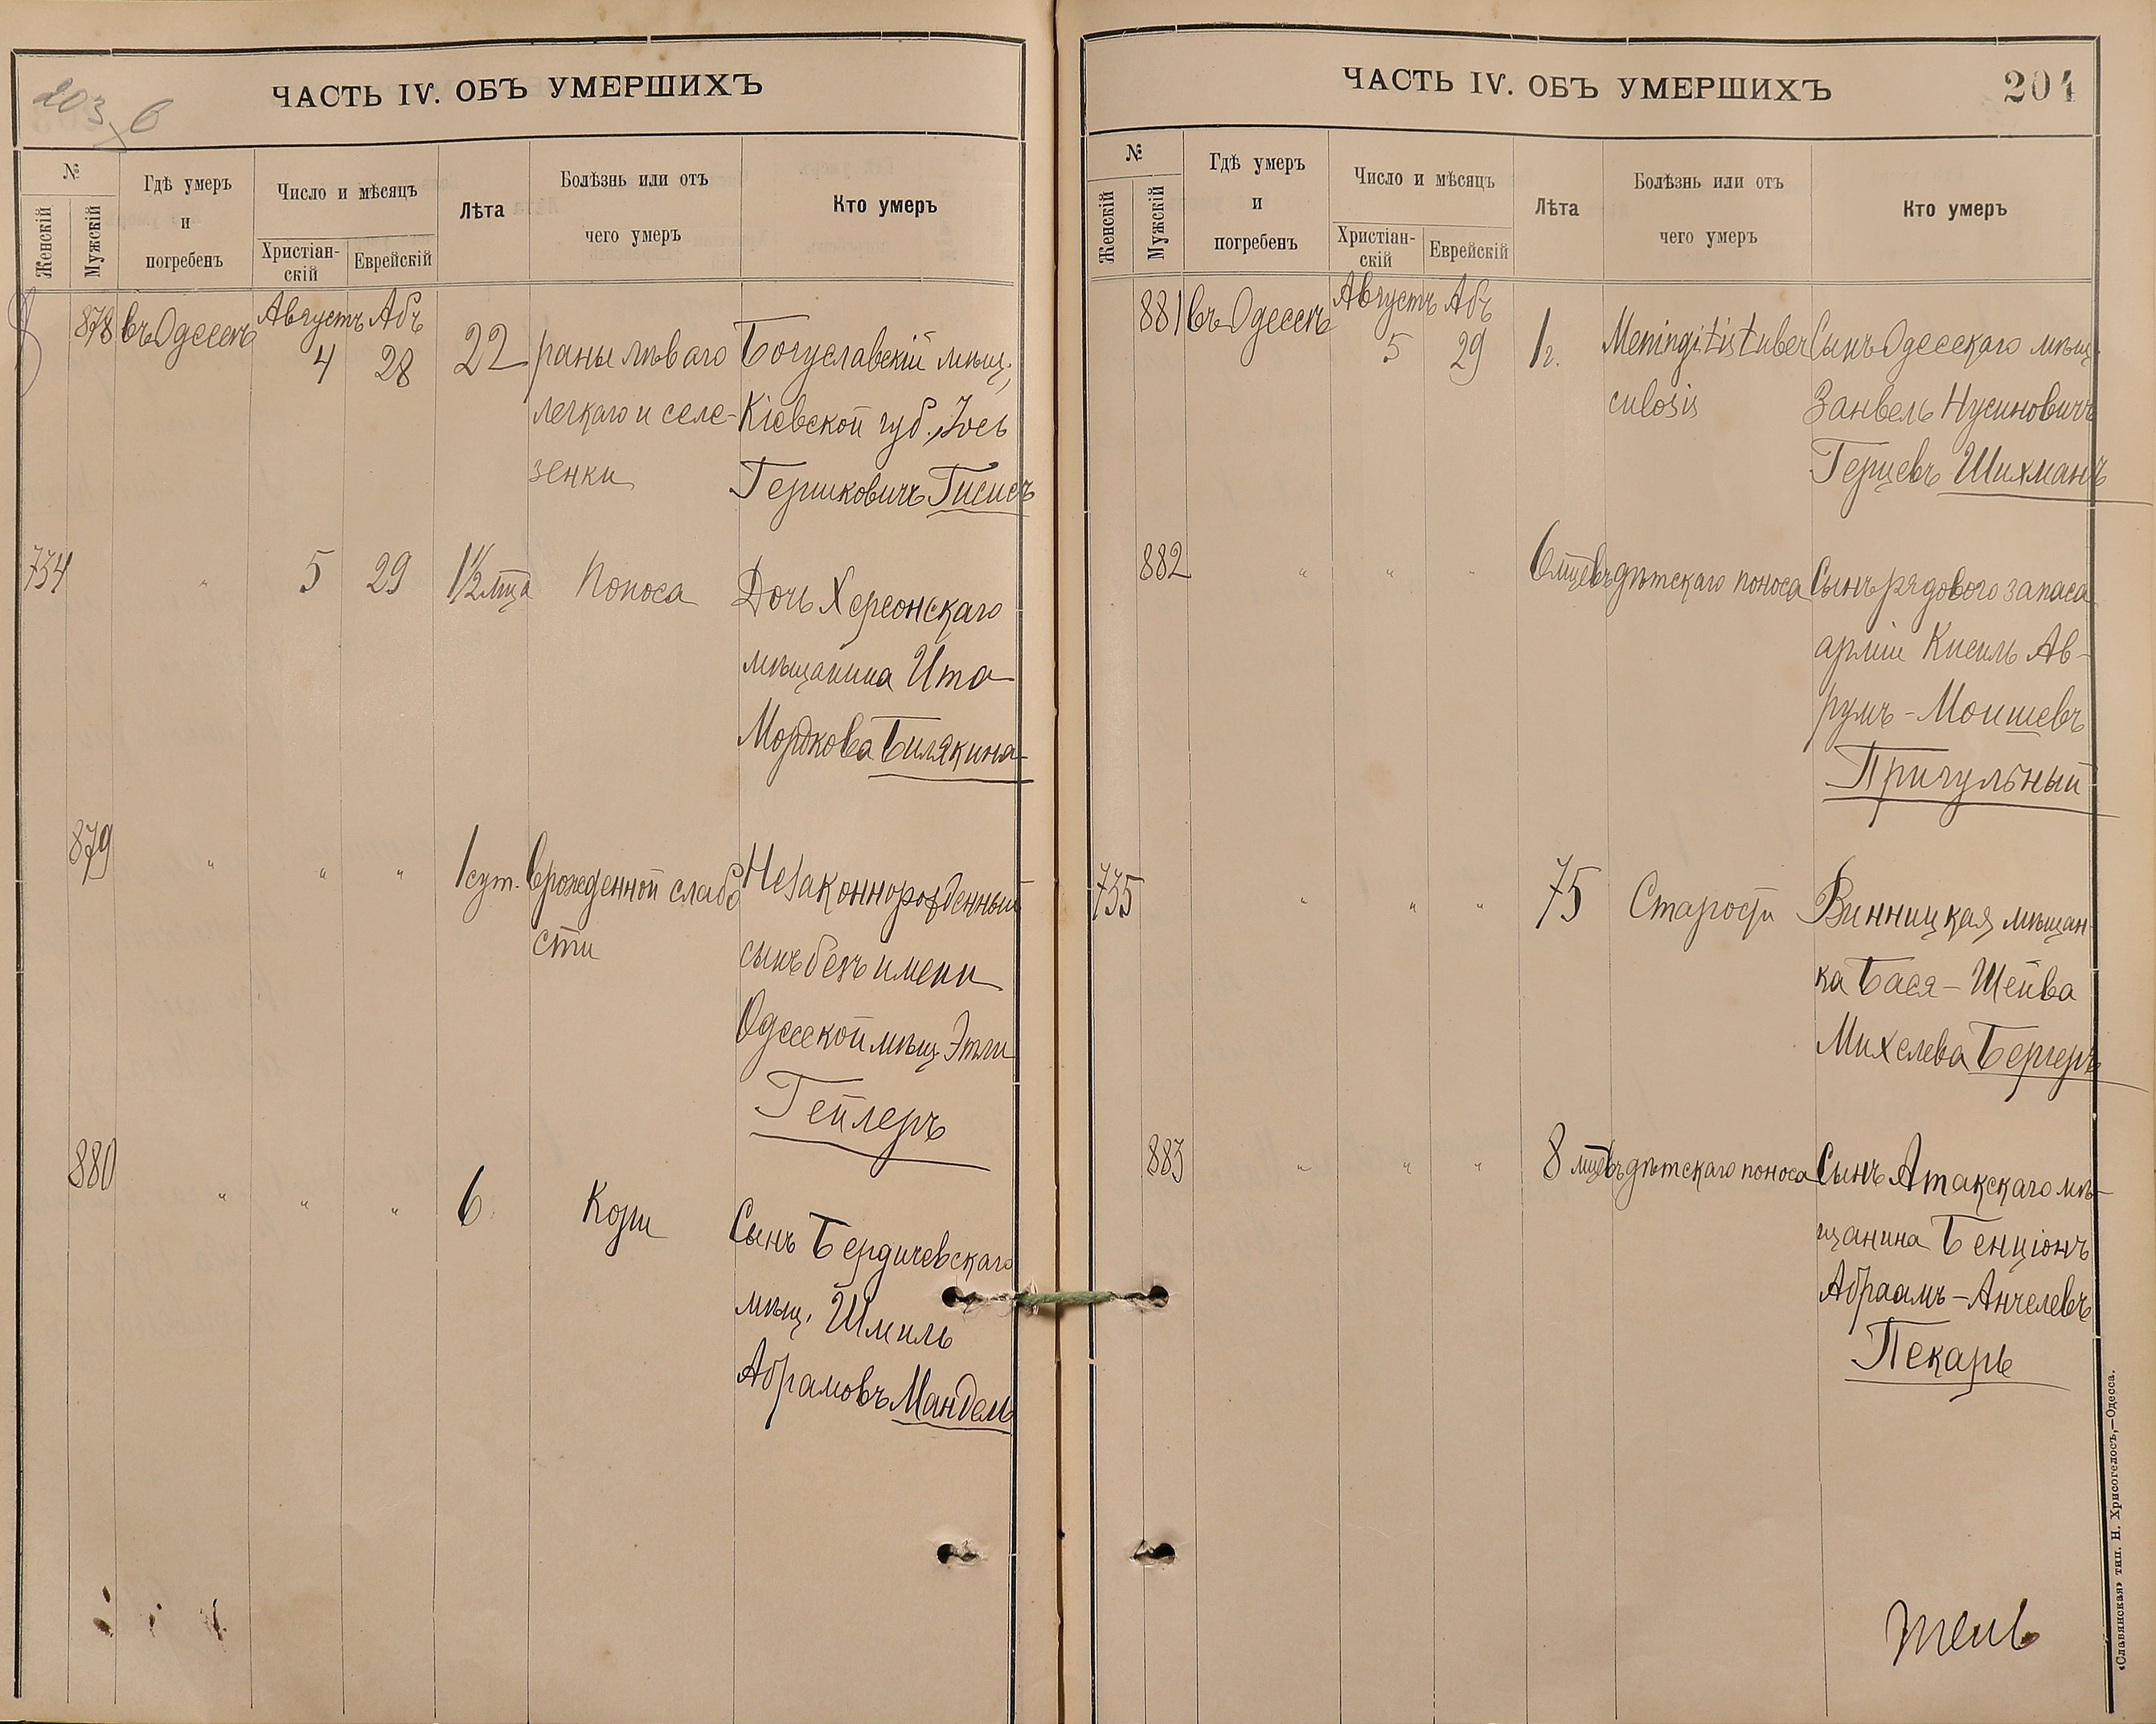 203 б
ЧАСТЬ IV. ОБЪ УМЕРШИХЪ
№
Женскій
Мужскій
Гдѣ умеръ
и
погребенъ
Число и мѣсяцъ
Христіан-
скій
Еврейскій
Лѣта
Болѣзнь или отъ
чего умеръ
Кто умеръ
878 въ Одессѣ Августъ 4 Абъ 28 22 раны лѣваго Богуславскій мѣщ.,
легкаго и селе- Кіевской губ., Іось
зенки Гершковичъ Гисисъ
734 " 5 29 1½ мца Поноса Дочь Херсонскаго
мѣщанина Ита
Мордкова Билякина
879 " " " 1 сут. Врожденной слабо Незаконнорожденный
сти сынъ безъ имени
Одесской мѣщ. Этли
Гейлеръ
880 " " " 6 Кори Сынъ Бердичевскаго
мѣщ. Шмиль
Абрамовъ Мандель
ЧАСТЬ IV. ОБЪ УМЕРШИХЪ
204
№
Женскій
Мужскій
Гдѣ умеръ
и
погребенъ
Число и мѣсяцъ
Христіан-
скій
Еврейскій
Лѣта
Болѣзнь или отъ
чего умеръ
Кто умеръ
881 въ Одессѣ Августъ 5 Абъ 29 1 г. Meningitis tuber Сынъ Одесскаго мѣщ.
culosis Занвель Нусиновичъ
Герцевъ Шихманъ
882 " " " 6 мцевъ дѣтскаго поноса Сынъ рядового запаса
арміи Кисиль Ав-
румъ-Моишевъ
Пригульный
735 " " " 75 Старости Винницкая мѣщан-
ка Бася-Шейва
Михелева Бергеръ
883 " " " 8 мцевъ дѣтскаго поноса Сынъ Атакскаго мѣ-
щанина Бенціонъ
Абраамъ-Анчелевъ
Пекарь
«Славянская» тип. Н. Хрисогелосъ,—Одесса.